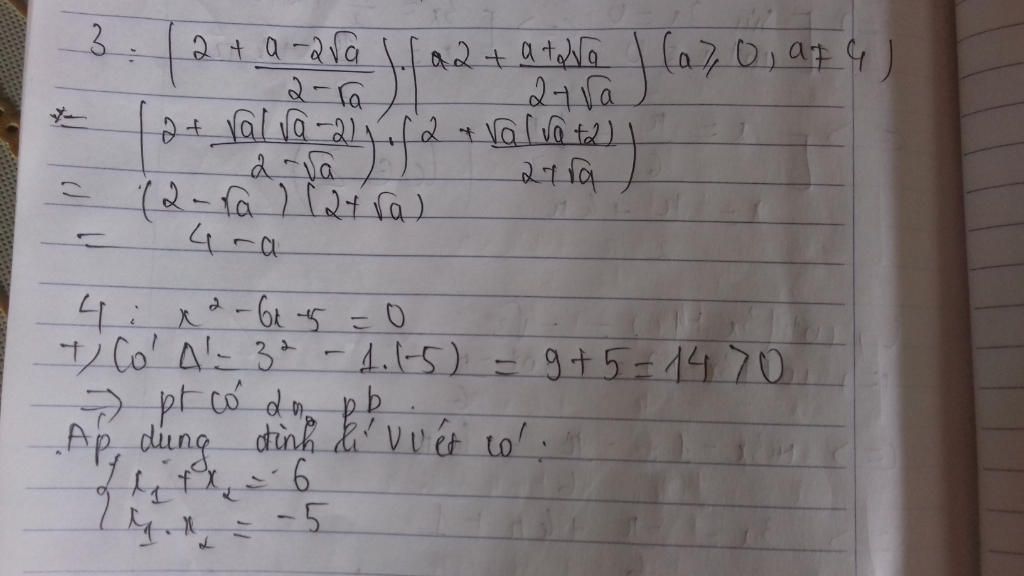 3 : (2 + (a - 2√a)/(2 - √a)) . (a2 + (a + 2√a)/(2 + √a)) (a ≥ 0, a ≠ 4)
= (2 + √a(√a - 2)/(2 - √a)) . (2 + √a(√a + 2)/(2 + √a))
= (2 - √a)(2 + √a)
= 4 - a
4 : x² - 6x - 5 = 0
+) Có Δ' = 3² - 1.(-5) = 9 + 5 = 14 > 0
=> pt có 2n pb.
Áp dụng định lí Viét có:
{ x₁ + x₂ = 6
{ x₁ . x₂ = -5